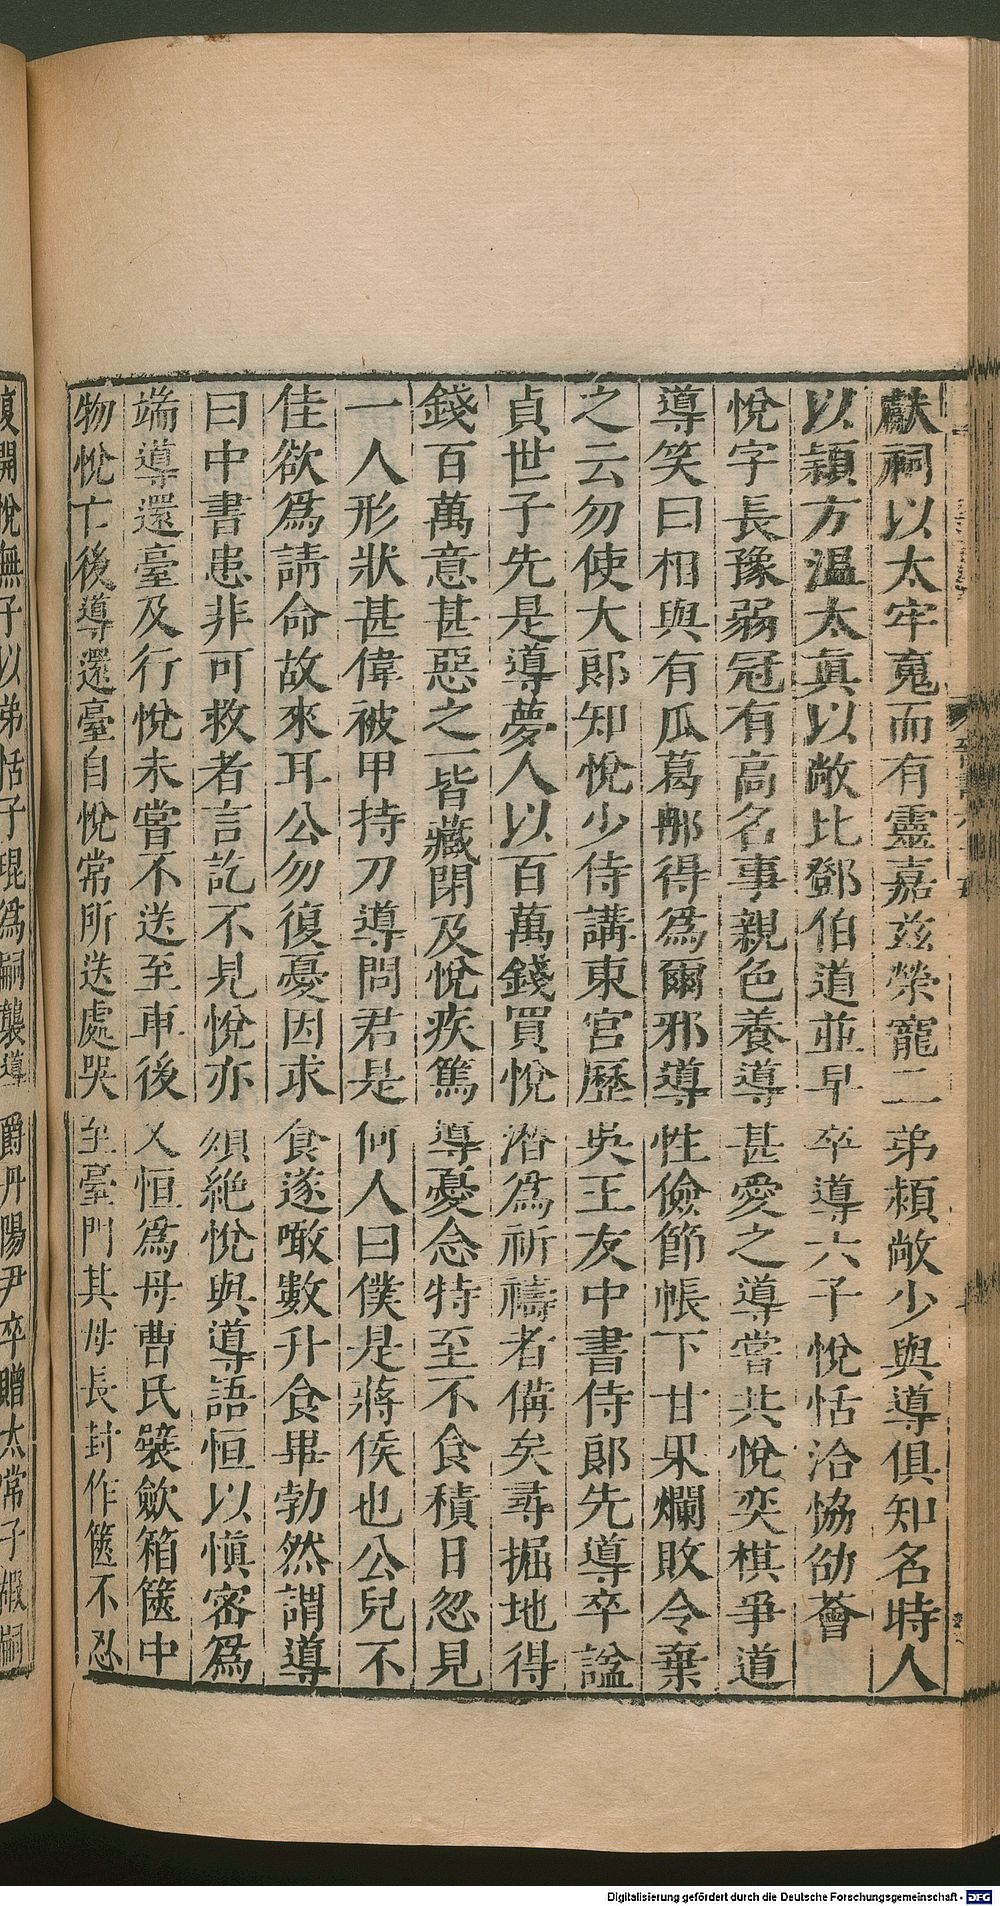 獻祠以太牢䰟而有靈嘉茲榮寵二弟潁敞少與導俱知名時人
以潁方溫太眞以敞比鄧伯道並早卒導六子悅恬洽協劭薈
悅字長豫弱冠有高名事親色養導甚愛之導嘗共悅奕棋爭道
導笑曰相與有瓜葛𨚗得爲爾邪導性儉節帳下甘果爛敗令棄
之云勿使大郎知悅少侍講東宮歷吳王友中書侍郎先導卒謚
貞世子先是導夢人以百萬錢買悅潛爲祈禱者備矣尋掘地得
錢百萬意甚惡之一皆藏閉及悅疾篤導憂念特至不食積日忽見
一人形狀甚偉被甲持刀導問君是何人曰僕是蔣侯也公兒不
佳欲爲請命故來耳公勿復憂因求食遂噉數升食畢勃然謂導
曰中書患非可救者言訖不見悅亦殞絶悅與導語恒以愼密爲
端導還臺及行悅未嘗不送至車後又恒爲母曹氏襞歛箱篋中
物悅亡後導還臺自悅常所送處哭至臺門其母長封作篋不忍
復開悅無子以弟恬子琨爲嗣襲導爵丹陽尹卒贈太常子嘏嗣
Digitalisierung gefördert durch die Deutsche Forschungsgemeinschaft - DFG